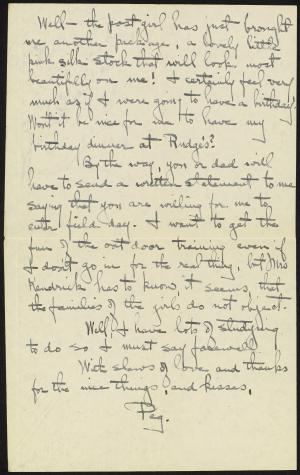 Well — the post girl has just brought
me another package, a lovely little
pink silk stock that will look most
beautifully on me! I certainly feel very
much as if I were going to have a birthday.
Won't it be nice for me to have my
birthday dinner at Rudge's?
By the way, you or dad will
have to send a written statement to me
saying that you are willing for me to
enter field-day. I want to get the
fun of the out door training even if
I don't go in for the real thing, but Mrs
Kendrick has to know it seems, that
the families of the girls do not object.
Well, I have lots of studying
to do so I must say farewell
With slews of love and thanks
for the nice things, and kisses,
Peg.